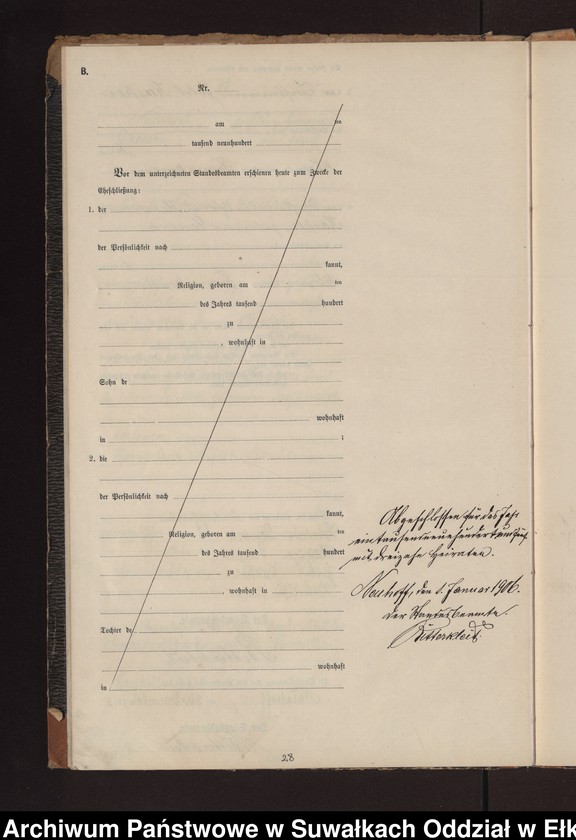 B.
Nr.
am ten
tausend neunhundert
Vor dem unterzeichneten Standesbeamten erschienen heute zum Zwecke der
Eheschließung:
1. der
der Persönlichkeit nach
kannt,
Religion, geboren am ten
des Jahres tausend hundert
zu
, wohnhaft in
Sohn de
wohnhaft
in ;
2. die
der Persönlichkeit nach
kannt,
Religion, geboren am ten
des Jahres tausend hundert
zu
, wohnhaft in
Tochter de
wohnhaft
in
Abgeschlossen für das Jahr
eintausendneunhundertundfünf
mit dreizehn Heiraten.
Neuhoff, den 1. Januar 1906.
Der Standesbeamte.
28
Archiwum Państwowe w Suwałkach Oddział w Ełk